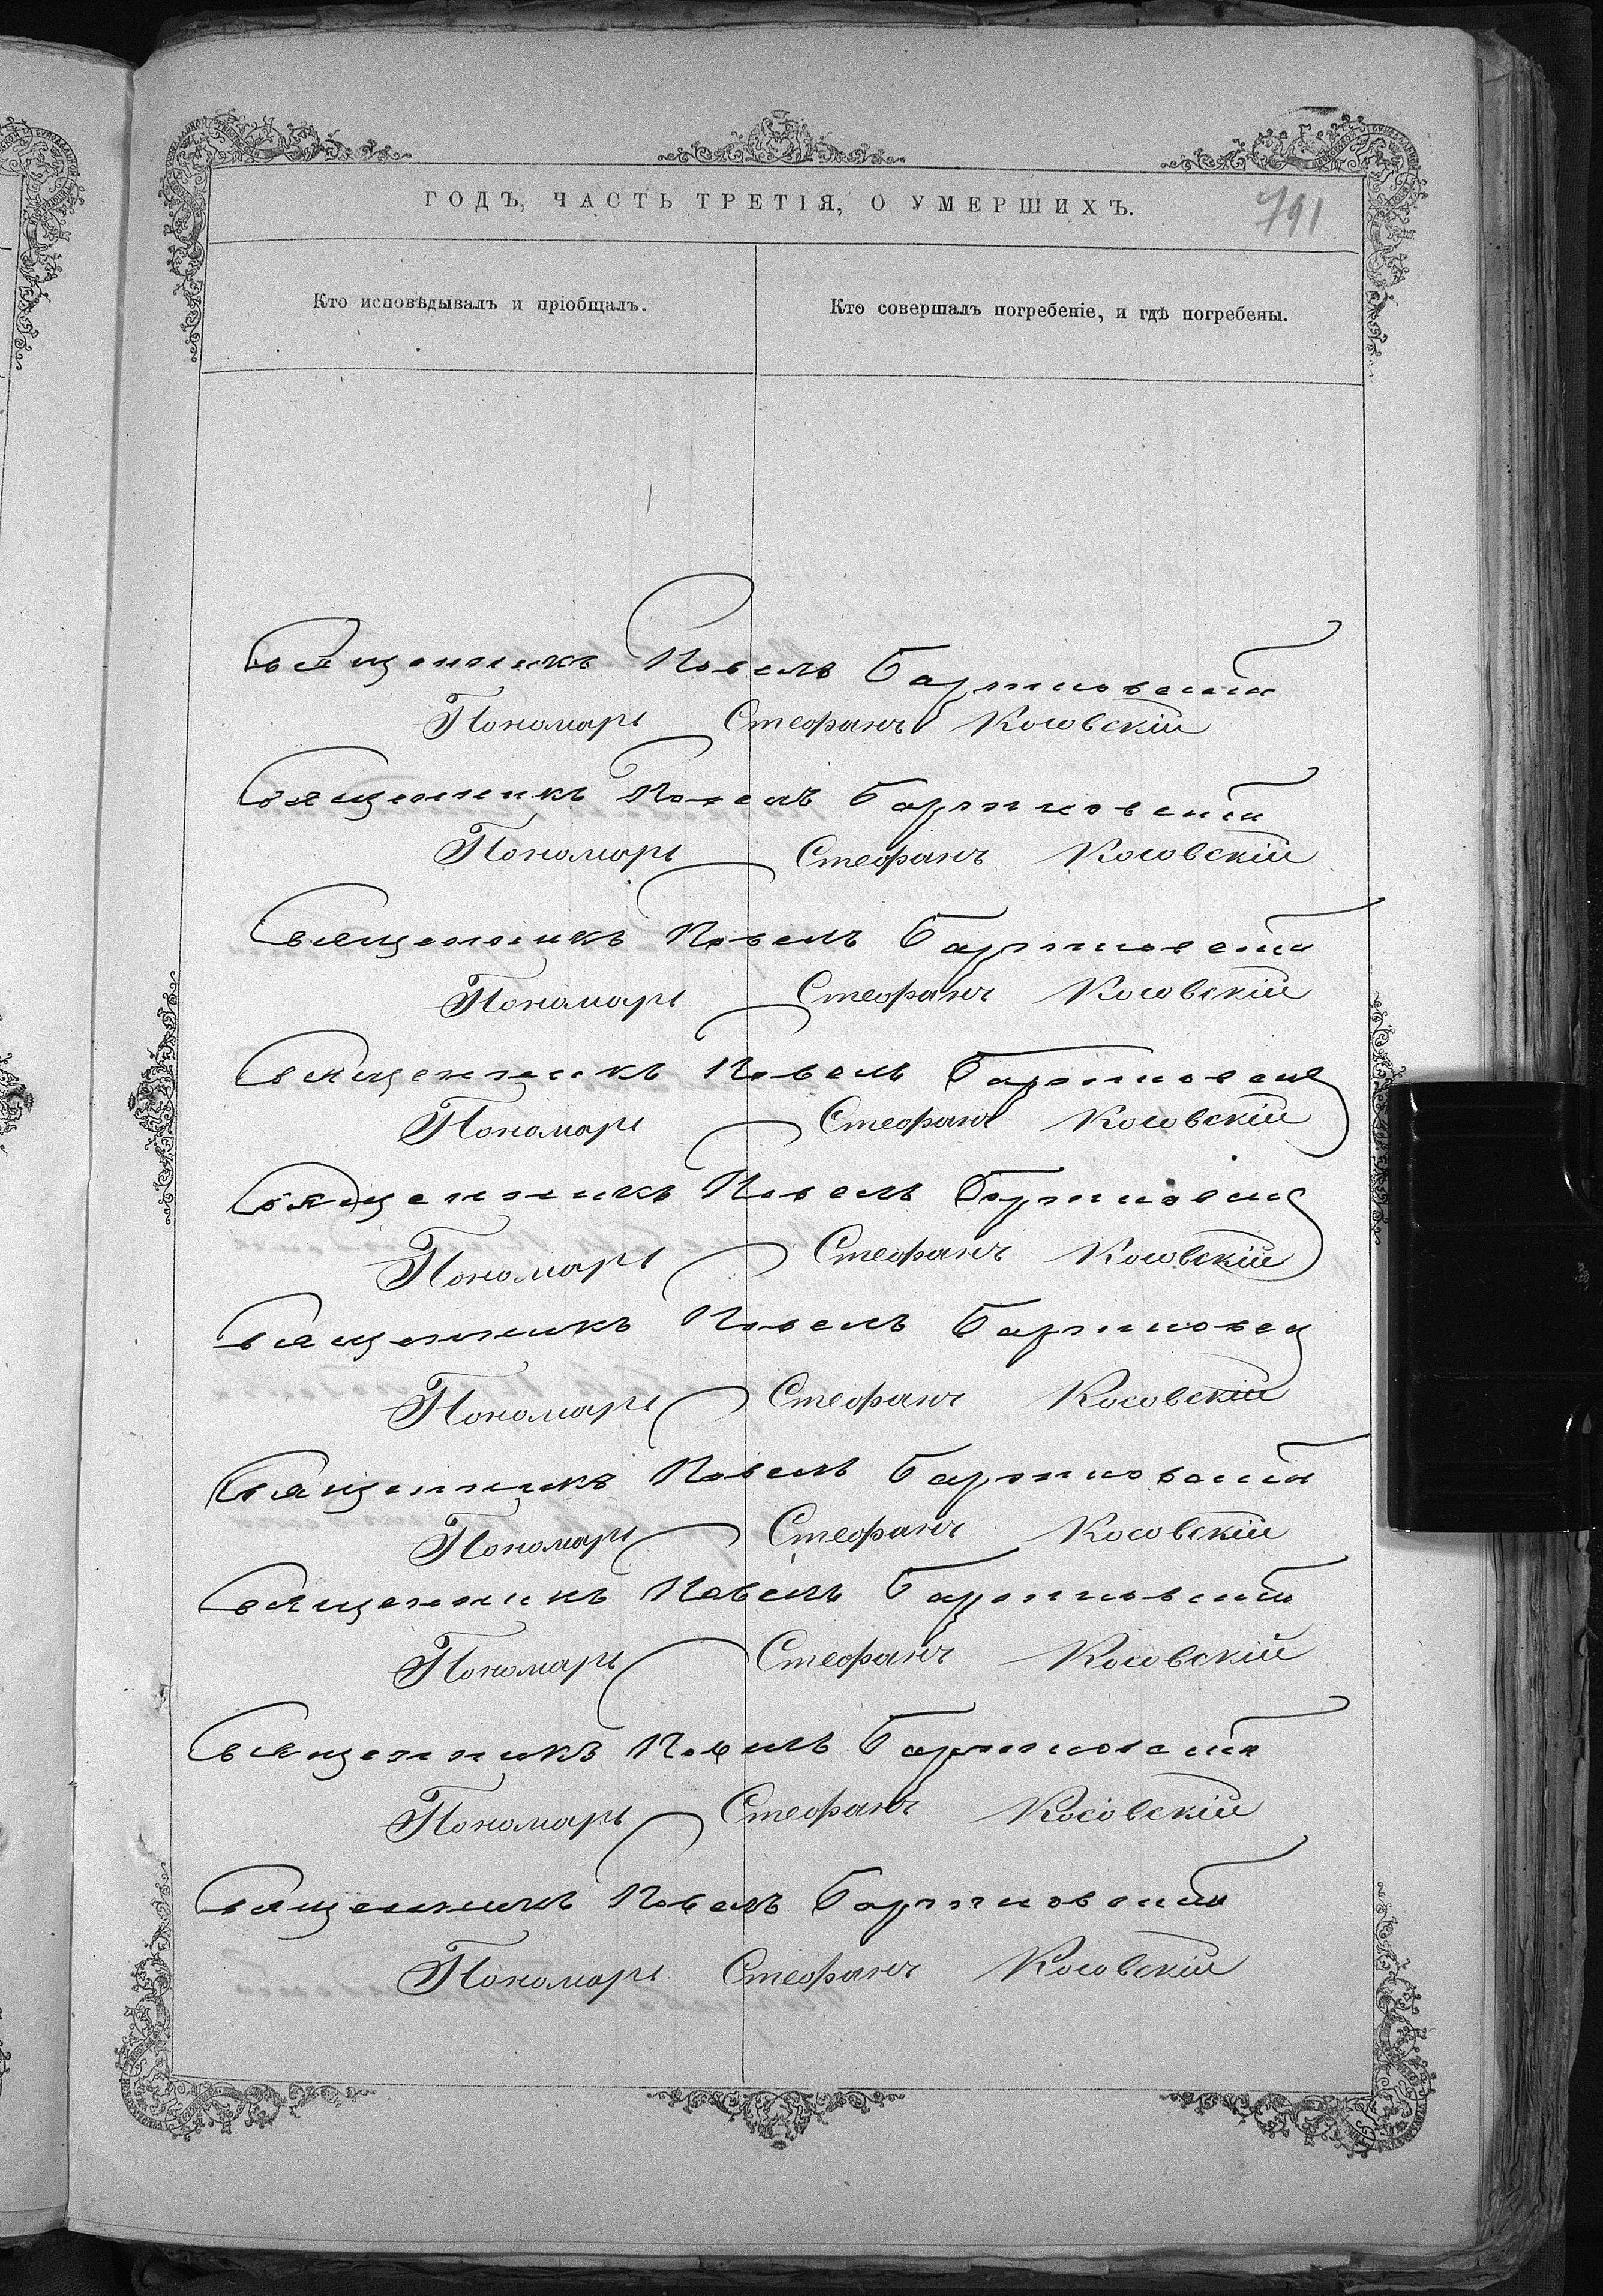 ГОДЪ, ЧАСТЬ ТРЕТІЯ, О УМЕРШИХЪ.
791
Кто исповѣдывалъ и пріобщалъ.
Кто совершалъ погребеніе, и гдѣ погребены.
Священникъ Павелъ Бартновскій
Пономарь Стефанъ Косовскій
Священникъ Павелъ Бартновскій
Пономарь Стефанъ Косовскій
Священникъ Павелъ Бартновскій
Пономарь Стефанъ Косовскій
Священникъ Павелъ Бартновскій
Пономарь Стефанъ Косовскій
Священникъ Павелъ Бартновскій
Пономарь Стефанъ Косовскій
Священникъ Павелъ Бартновскій
Пономарь Стефанъ Косовскій
Священникъ Павелъ Бартновскій
Пономарь Стефанъ Косовскій
Священникъ Павелъ Бартновскій
Пономарь Стефанъ Косовскій
Священникъ Павелъ Бартновскій
Пономарь Стефанъ Косовскій
Священникъ Павелъ Бартновскій
Пономарь Стефанъ Косовскій